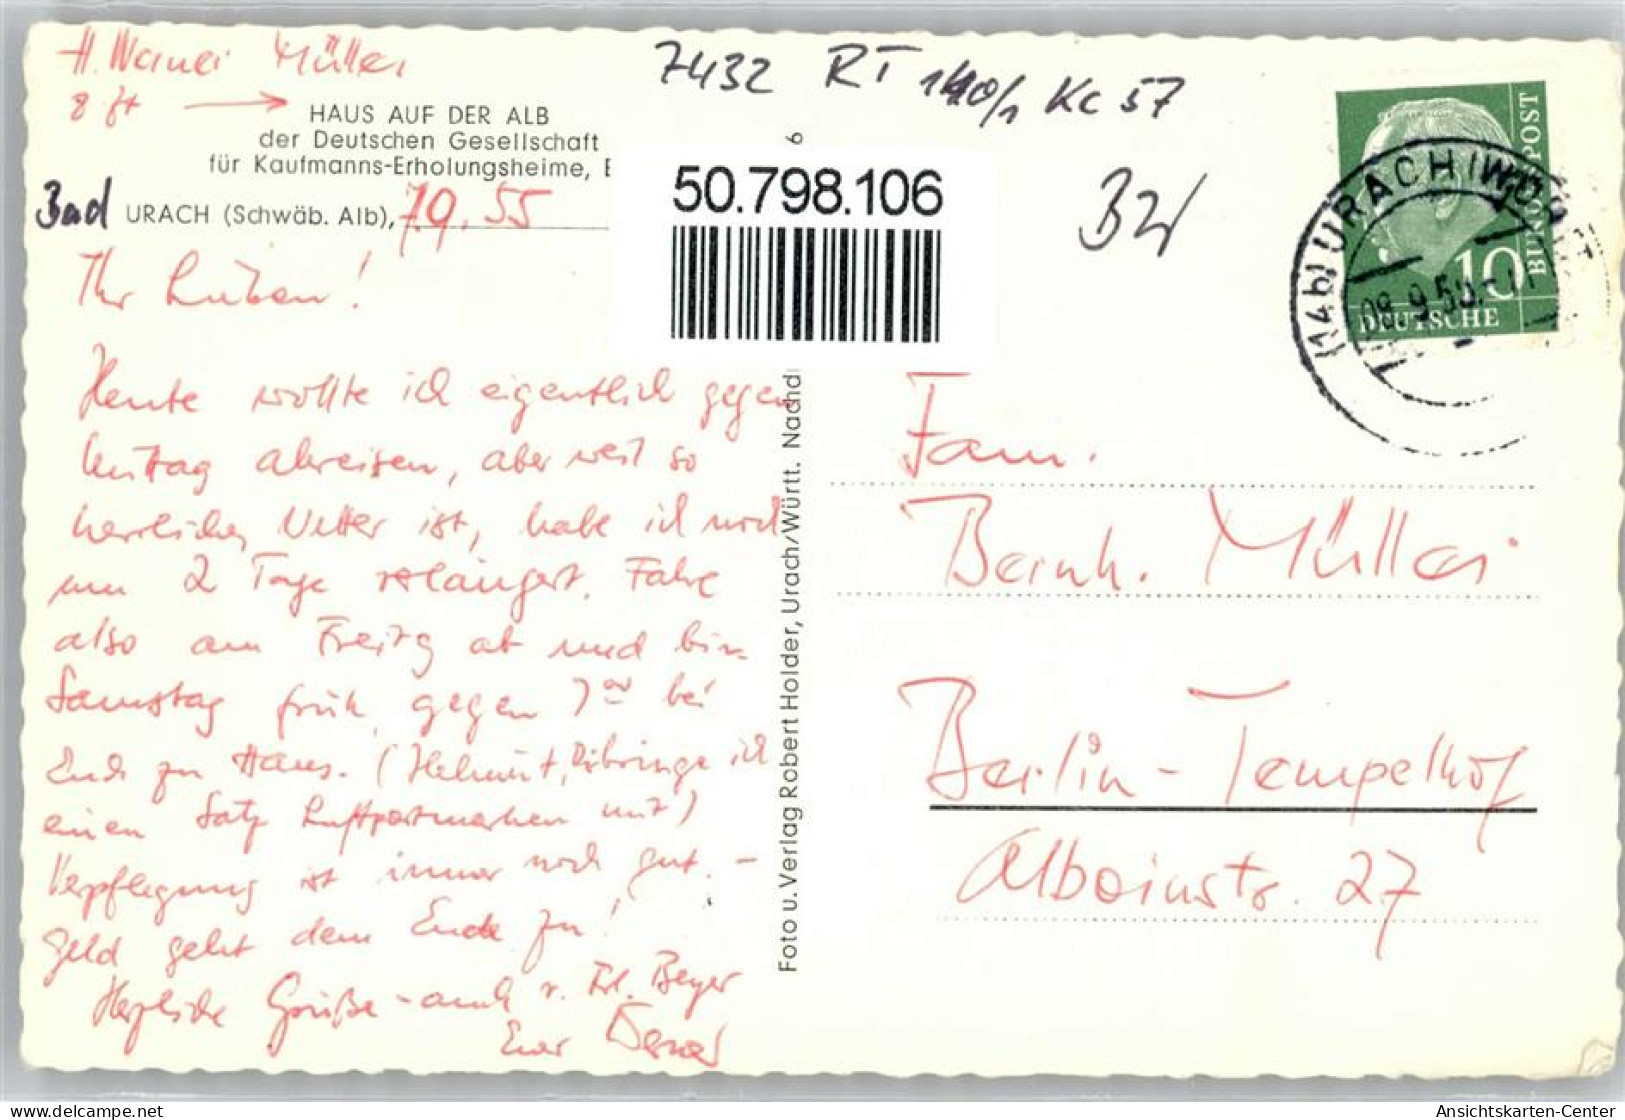 H. Werner Müller
HAUS AUF DER ALB
der Deutschen Gesellschaft
für Kaufmanns-Erholungsheime, E
Bad URACH (Schwäb. Alb), 7.9.55
Ihr Lieben!
Heute wollte ich eigentlich gegen
Mittag abreisen, aber weil so
herrliches Wetter ist, habe ich noch
um 2 Tage verlängert. Fahre
also am Freitg ab und bin
Samstag früh gegen 7 bei
Euch zu Haus. (Helmut, Dir bringe ich
einen Satz Luftpostmarken mit)
Verpflegung ist immer noch gut. -
Geld geht dem Ende zu!
Herzliche Grüße - auch v. Frl. Beyer
Euer Werner
7432 RT 140/1 Kc 57
6
50.798.106
Foto u. Verlag Robert Holder, Urach/Württ. Nachd
DEUTSCHE
BUNDESPOST
10
(14b) URACH (WÜRTT
08.9.55.-11
Fam.
Bernh. Müller
Berlin-Tempelhof
Alboinstr. 27
www.delcampe.net
Ansichtskarten-Center